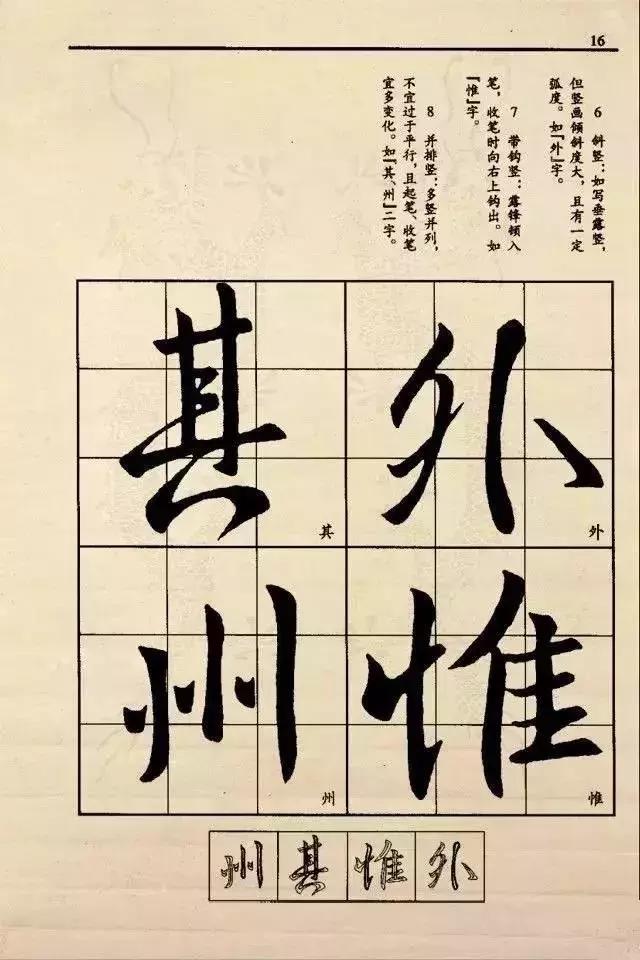 16
6 斜竖：如写垂露竖，
但竖画倾斜度大，且有一定
弧度。如『外』字。
7 带钩竖：露锋顿入
笔，收笔时向右上钩出。如
『惟』字。
8 并排竖：多竖并列，
不宜过于平行，且起笔、收笔
宜多变化。如『其、州』二字。
外
外
惟
惟
其
其
州
州
外惟其州